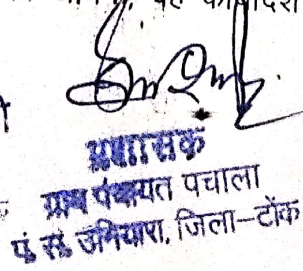 प्रशासक
ग्राम पंचायत पचाला
पं. सं. उनियारा, जिला-टोंक